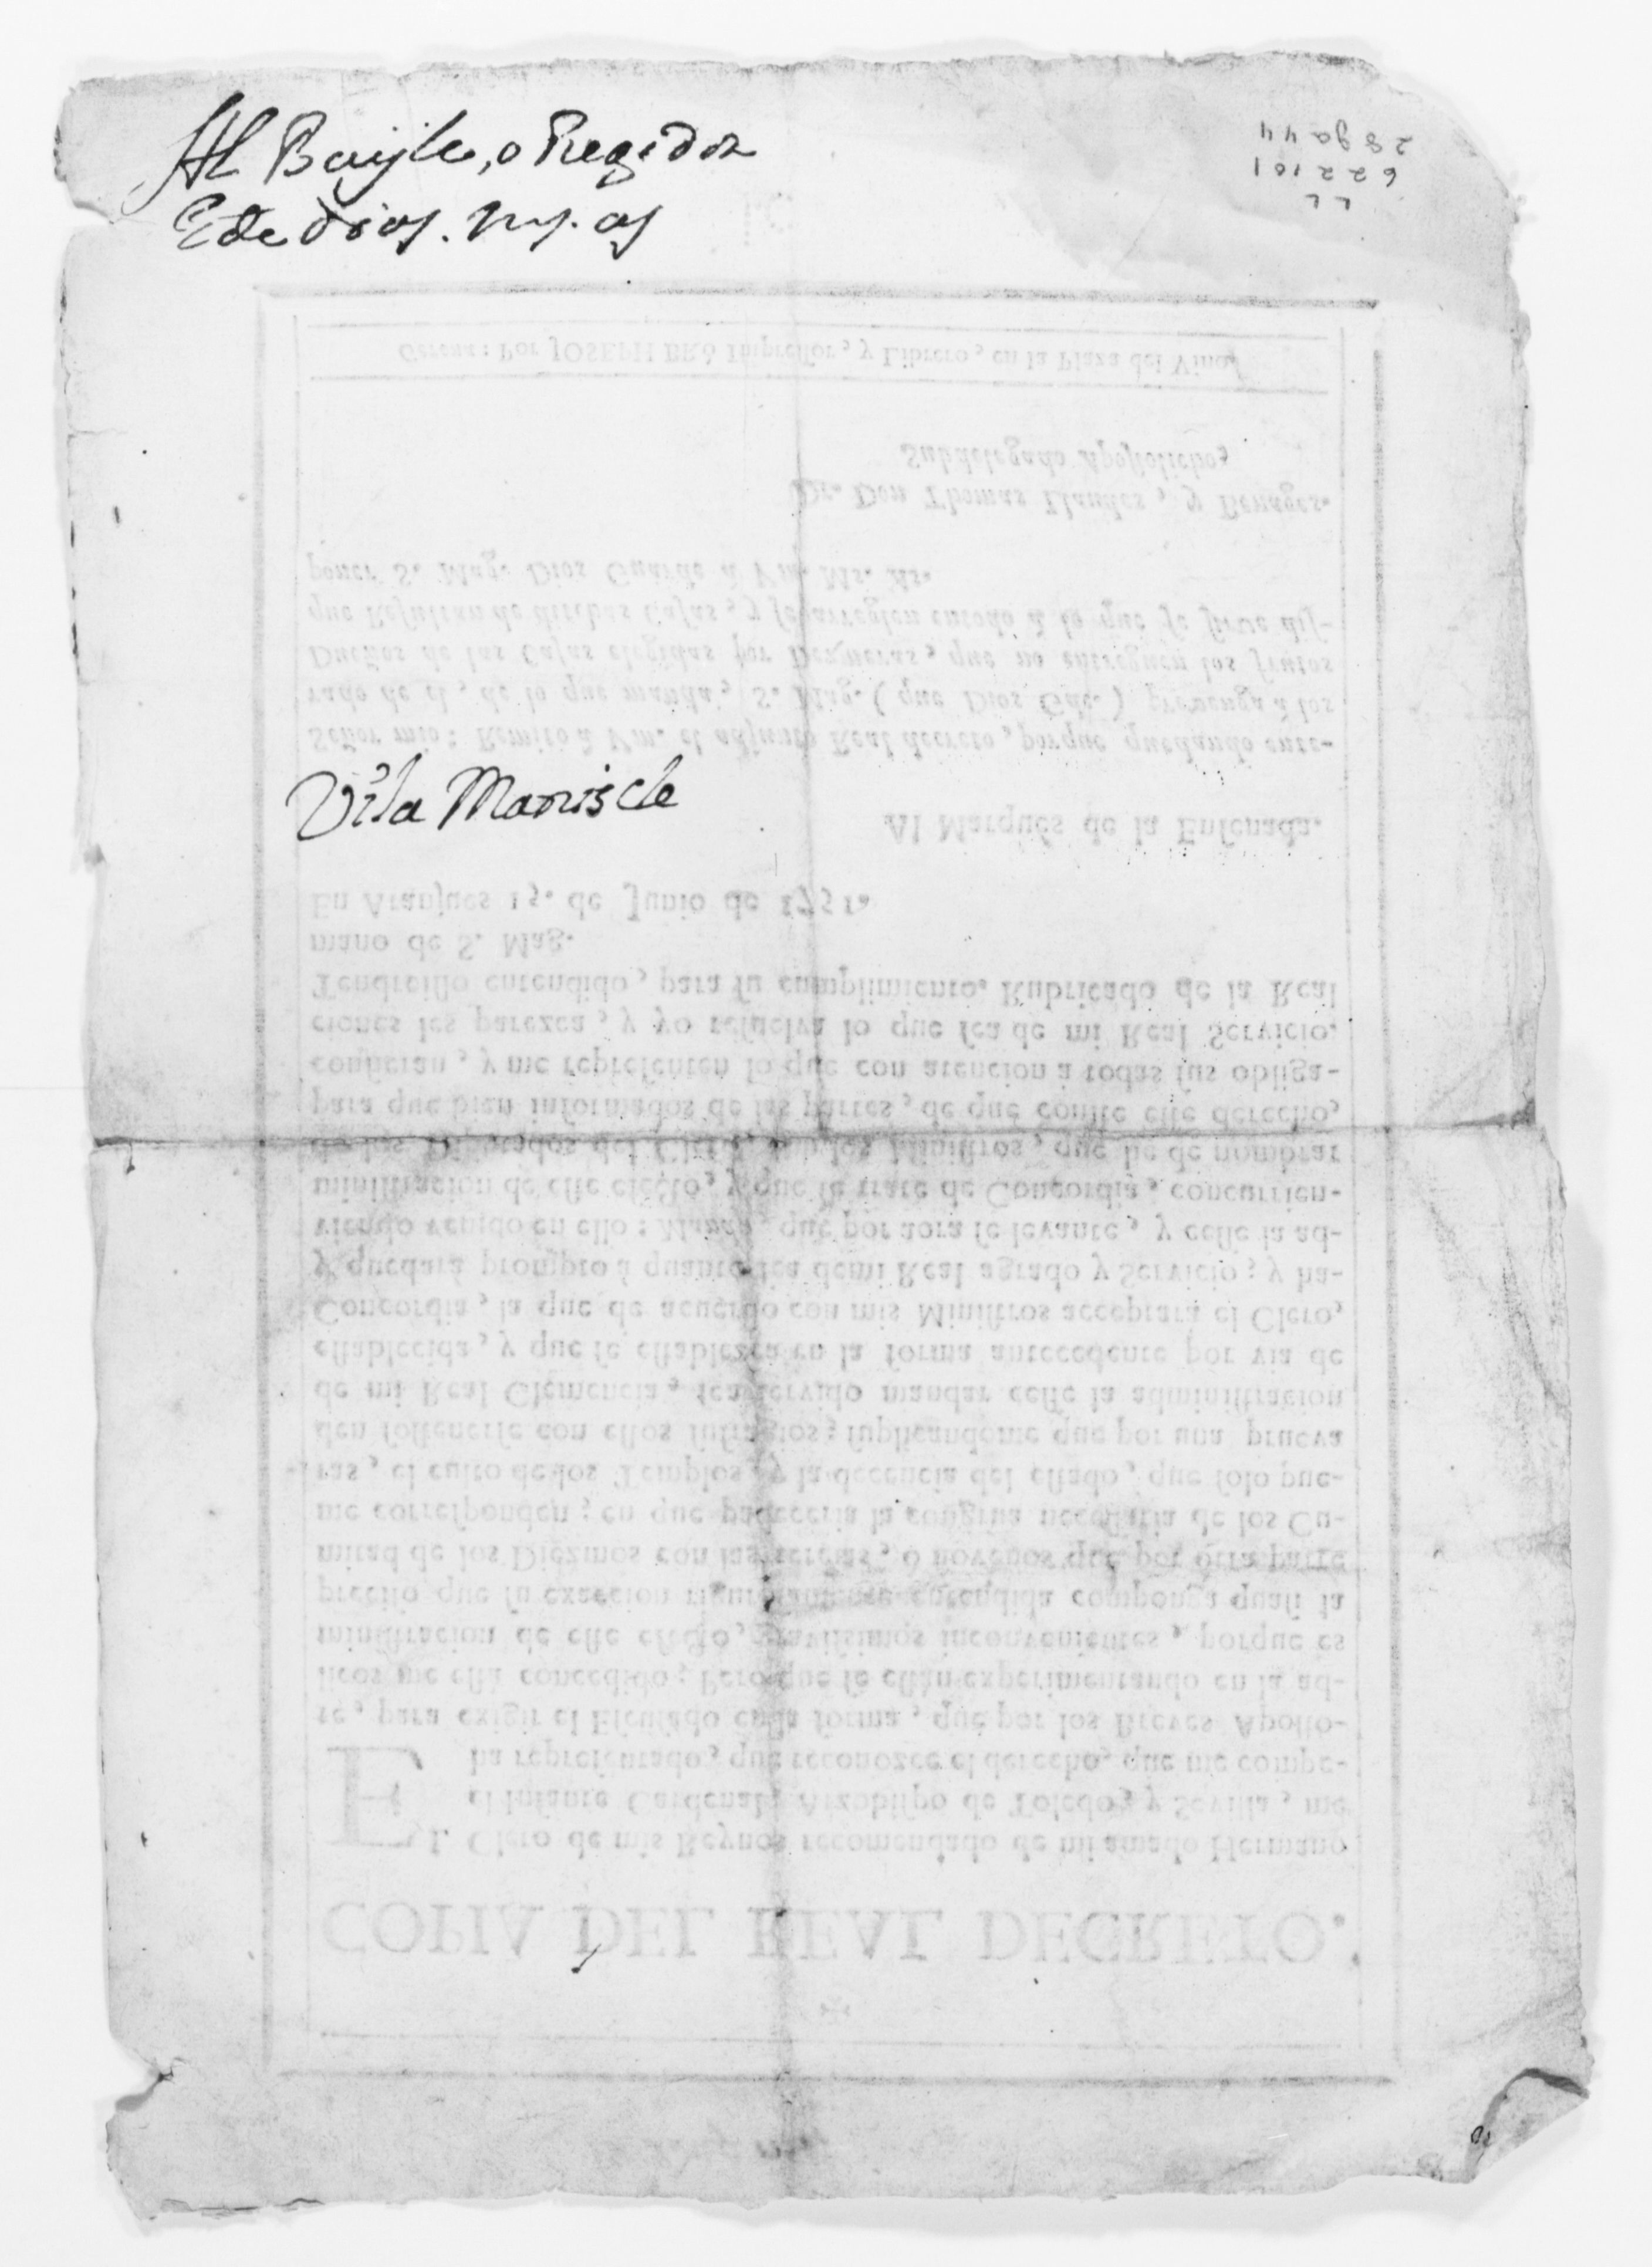 Al Bayle, o Regidor
Gde Dios. ms. as
Vila Maniscle
622101
COPIA DEL REAL DECRETO.
EL Clero de mis Reynos recomendado de mi amado Hermano
el Infante Cardenal, Arzobispo de Toledo, y Sevilla, me
ha representado, que reconozce el derecho, que me compe-
te, para exigir el Escusado en la forma, que por los Breves Aposto-
licos me està concedido; Pero que se estàn experimentando en la ad-
ministracion de este efecto, gravissimos inconvenientes, porque es
preciso que su exaccion rigurosamente entendida componga quasi la
mitad de los Diezmos con las tercias, ò novenos que por otra parte
me corresponden; en que padeceria la congrua necessaria de los Cu-
ras, el culto de los Templos, y la decencia del estado, que solo pue-
den sostenerse con estos sufragios; suplicandome que por una prueva
de mi Real Clemencia, sea servido mandar cesse la administracion
establecida, y que se establezca en la forma antecedente por via de
Concordia, la que de acuerdo con mis Ministros acceptarà el Clero,
y quedarà prompto à quanto sea demi Real agrado y Servicio; y ha-
viendo venido en ello: Mando, que por aora se levante, y cesse la ad-
ministracion de este efecto, y que se trate de Concordia, concurrien-
do los Diputados del Clero, con los Ministros, que he de nombrar
para que bien informados de las partes, de que conste este derecho,
confieran, y me representen lo que con atencion à todas sus obliga-
ciones les parezca, y yo resuelva lo que sea de mi Real Servicio.
Tendreislo entendido, para su cumplimiento. Rubricado de la Real
mano de S. Mag.
En Aranjues 15. de Junio de 1751.
Al Marquès de la Ensenada.
Señor mio: Remito à Vm. el adjunto Real decreto, porque quedando ente-
rado de el, de lo que manda, S. Mag. (que Dios Gde.) prevenga à los
Dueños de las Casas elegidas por Dezneras, que no entreguen los frutos
que Resultan de ditchas Casas, y se arreglen entodo à lo que se sirve dis-
poner S. Mag. Dios Guarde à Vm. Ms. As.
Dr. Don Thomas Llandes, y Benages.
Subdelegado Apostolicho,
Gerona: Por JOSEPH BRÒ Impressor, y Librero, en la Plaza del Vino.